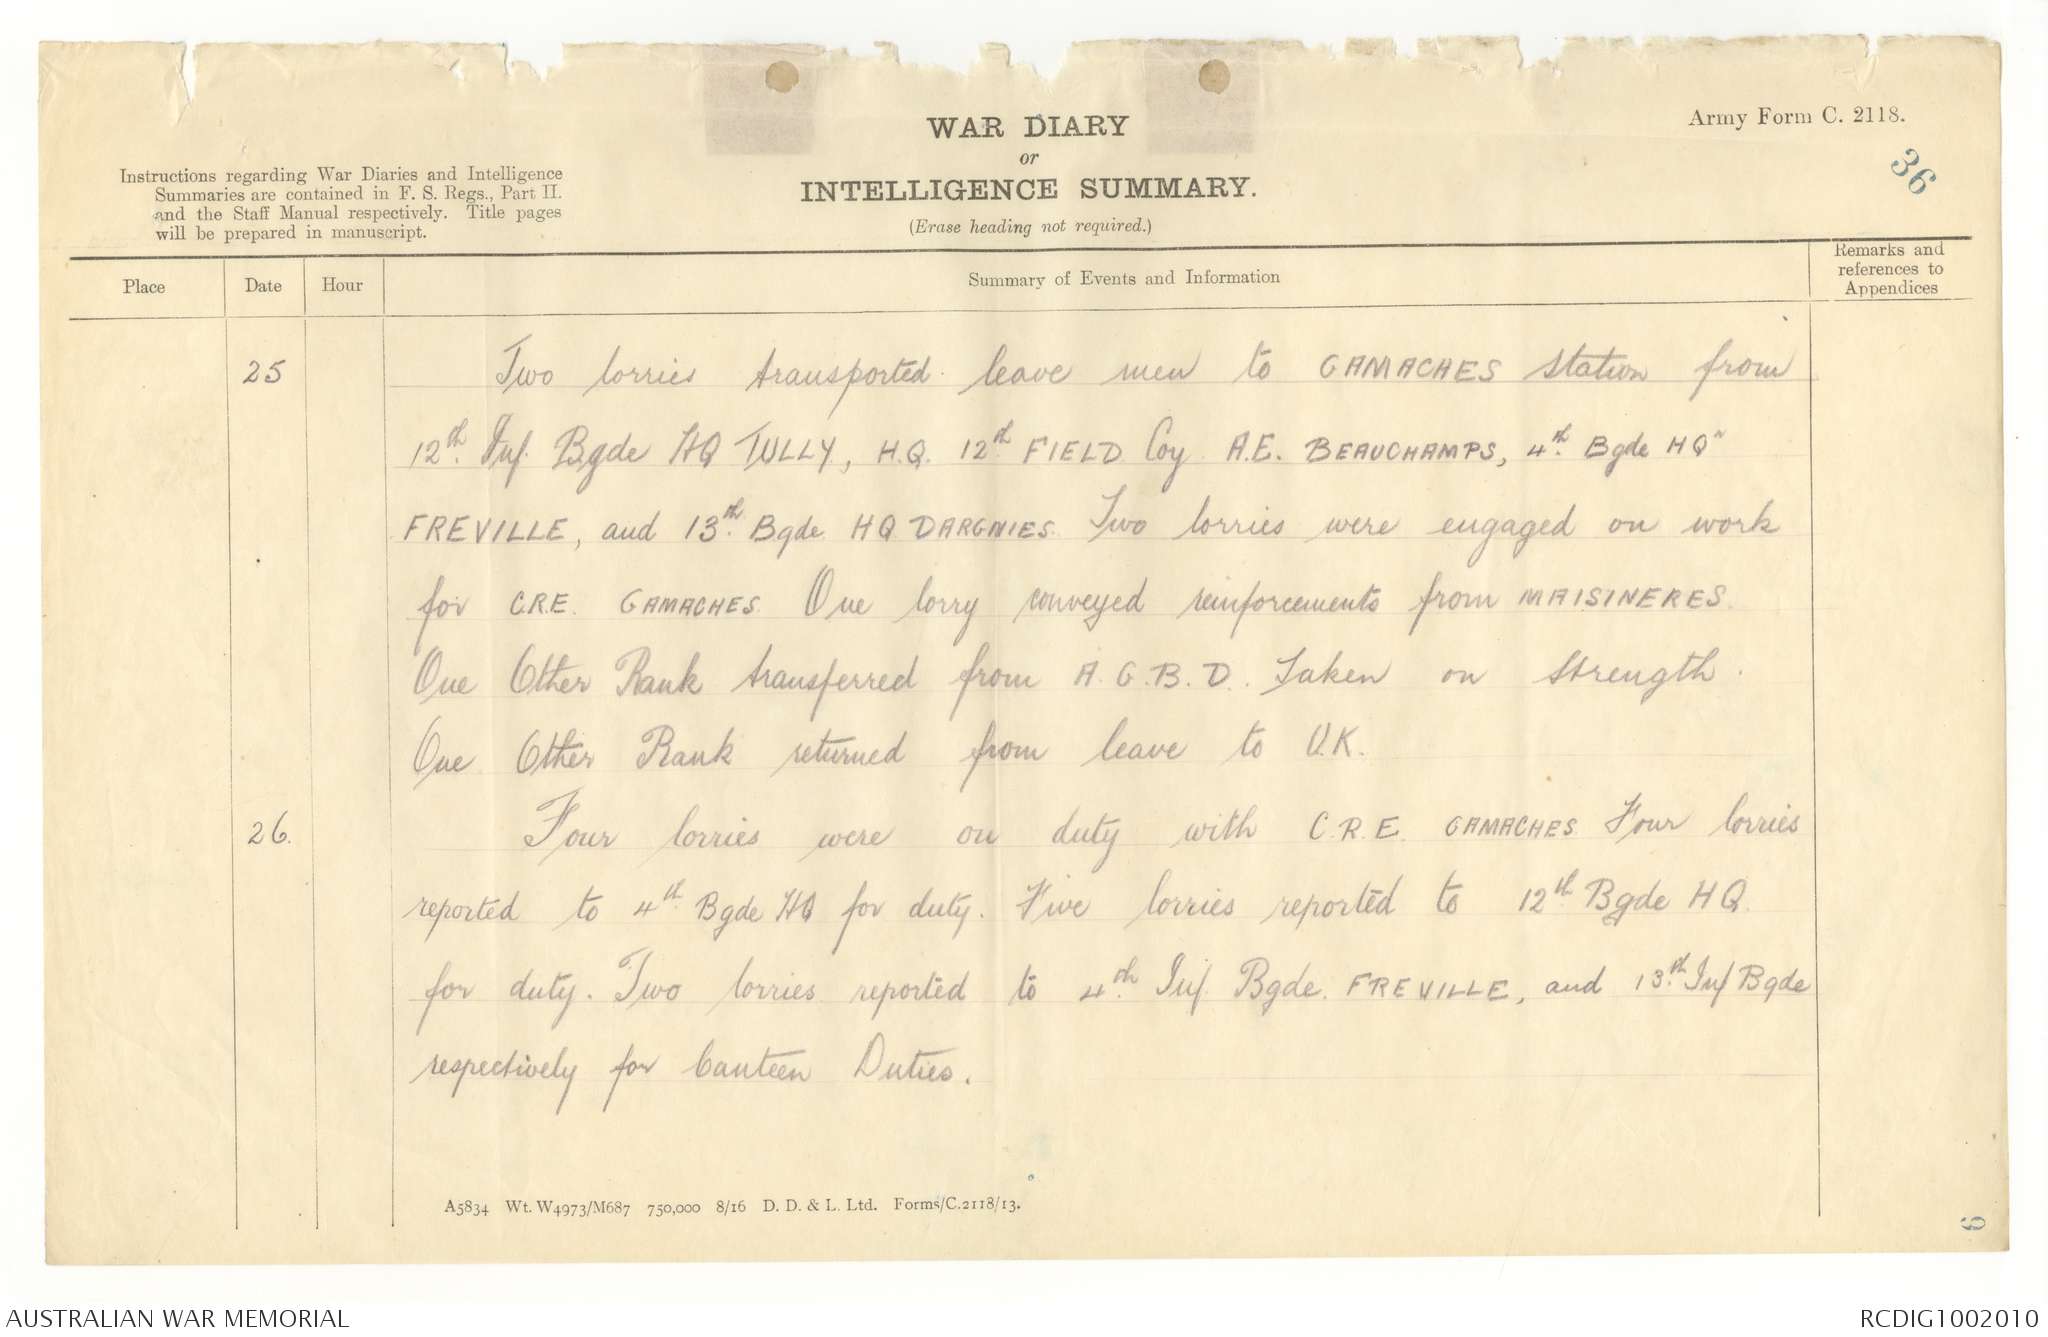 WAR DIARY
or
INTELLIGENCE SUMMARY.
(Erase heading not required.)
Army Form C. 2118.
36
Instructions regarding War Diaries and Intelligence
Summaries are contained in F. S. Regs., Part II.
and the Staff Manual respectively. Title pages
will be prepared in manuscript.
Place Date Hour Summary of Events and Information Remarks and
references to
Appendices
25 Two lorries transported leave men to GAMACHES Station from
12th. Inf. Bgde HQ TULLY, H.Q. 12th FIELD Coy A.E. BEAUCHAMPS, 4th. Bgde HQ
FREVILLE, and 13th. Bgde HQ DARGNIES. Two lorries were engaged on work
for C.R.E. GAMACHES. One lorry conveyed reinforcements from MAISINERES.
One Other Rank transferred from A.G.B.D. Taken on Strength.
One Other Rank returned from leave to U.K.
26. Four lorries were on duty with C.R.E. GAMACHES Four lorries
reported to 4th. Bgde HQ for duty. Five lorries reported to 12th Bgde HQ.
for duty. Two lorries reported to 4th. Inf. Bgde. FREVILLE, and 13th. Inf Bgde
respectively for Canteen Duties.
A5834 Wt. W4973/M687 750,000 8/16 D. D. & L. Ltd. Forms/C.2118/13.
6
AUSTRALIAN WAR MEMORIAL
RCDIG1002010